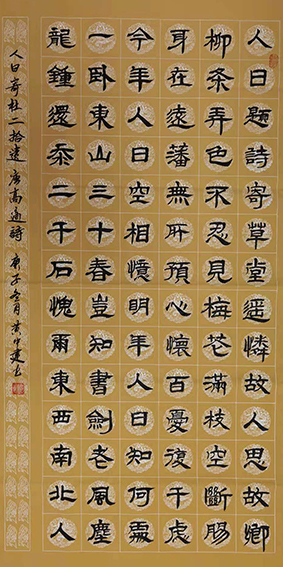 人日題詩寄草堂遥憐故人思故鄉
柳条弄色不忍見梅花滿枝空斷腸
身在遠藩無所預心懷百憂復千慮
今年人日空相憶明年人日知何處
一卧東山三十春豈知書劍老風塵
龍鍾還忝二千石愧爾東西南北人
人日寄杜二拾遺 唐高適詩 庚子冬月